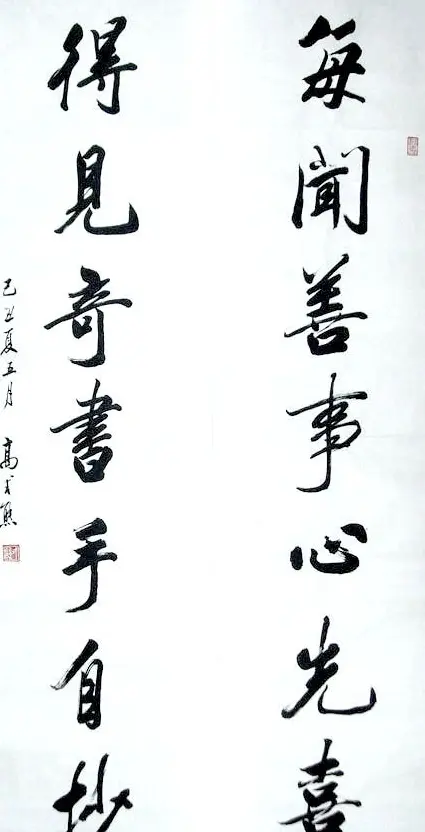 每聞善事心先喜
得見奇書手自抄
己丑夏五月 高式熊